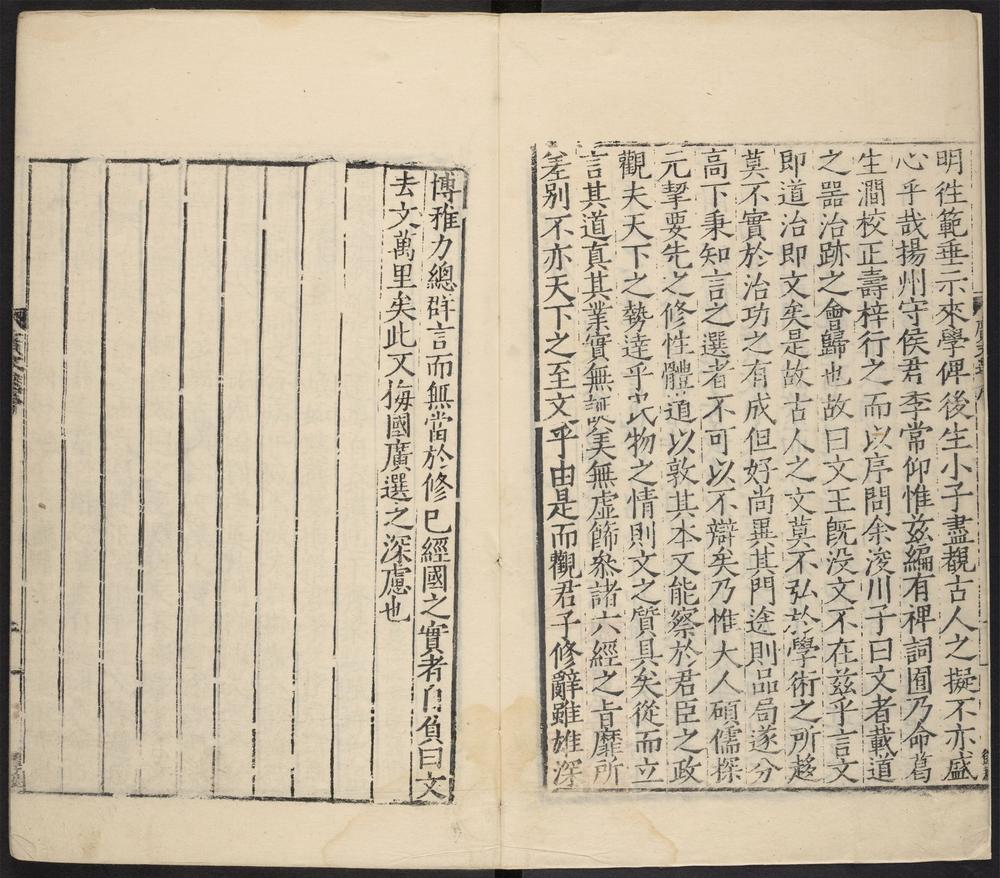 明徃範垂示來學俾後生小子盡覩古人之擬不亦盛
心乎哉揚州守侯君李常仰惟兹編有禆詞囿乃命葛
生澗校正壽梓行之而以序問余浚川子曰文者載道
之器治跡之會歸也故曰文王旣没文不在兹乎言文
即道治即文矣是故古人之文莫不弘於學術之所趍
莫不實於治功之有成但好尚異其門途則品局遂分
高下秉知言之選者不可以不辯矣乃惟大人碩儒探
元挈要先之修性體道以敦其本又能察於君臣之政
觀夫天下之勢達乎民物之情則文之質具矣從而立
言其道真其業實無誕美無虚飾叅諸六經之旨靡所
差别不亦天下之至文乎由是而觀君子修辭雖雄深
博雅力總群言而無當於修已經國之實者自負曰文
去文萬里矣此又梅國廣選之深慮也